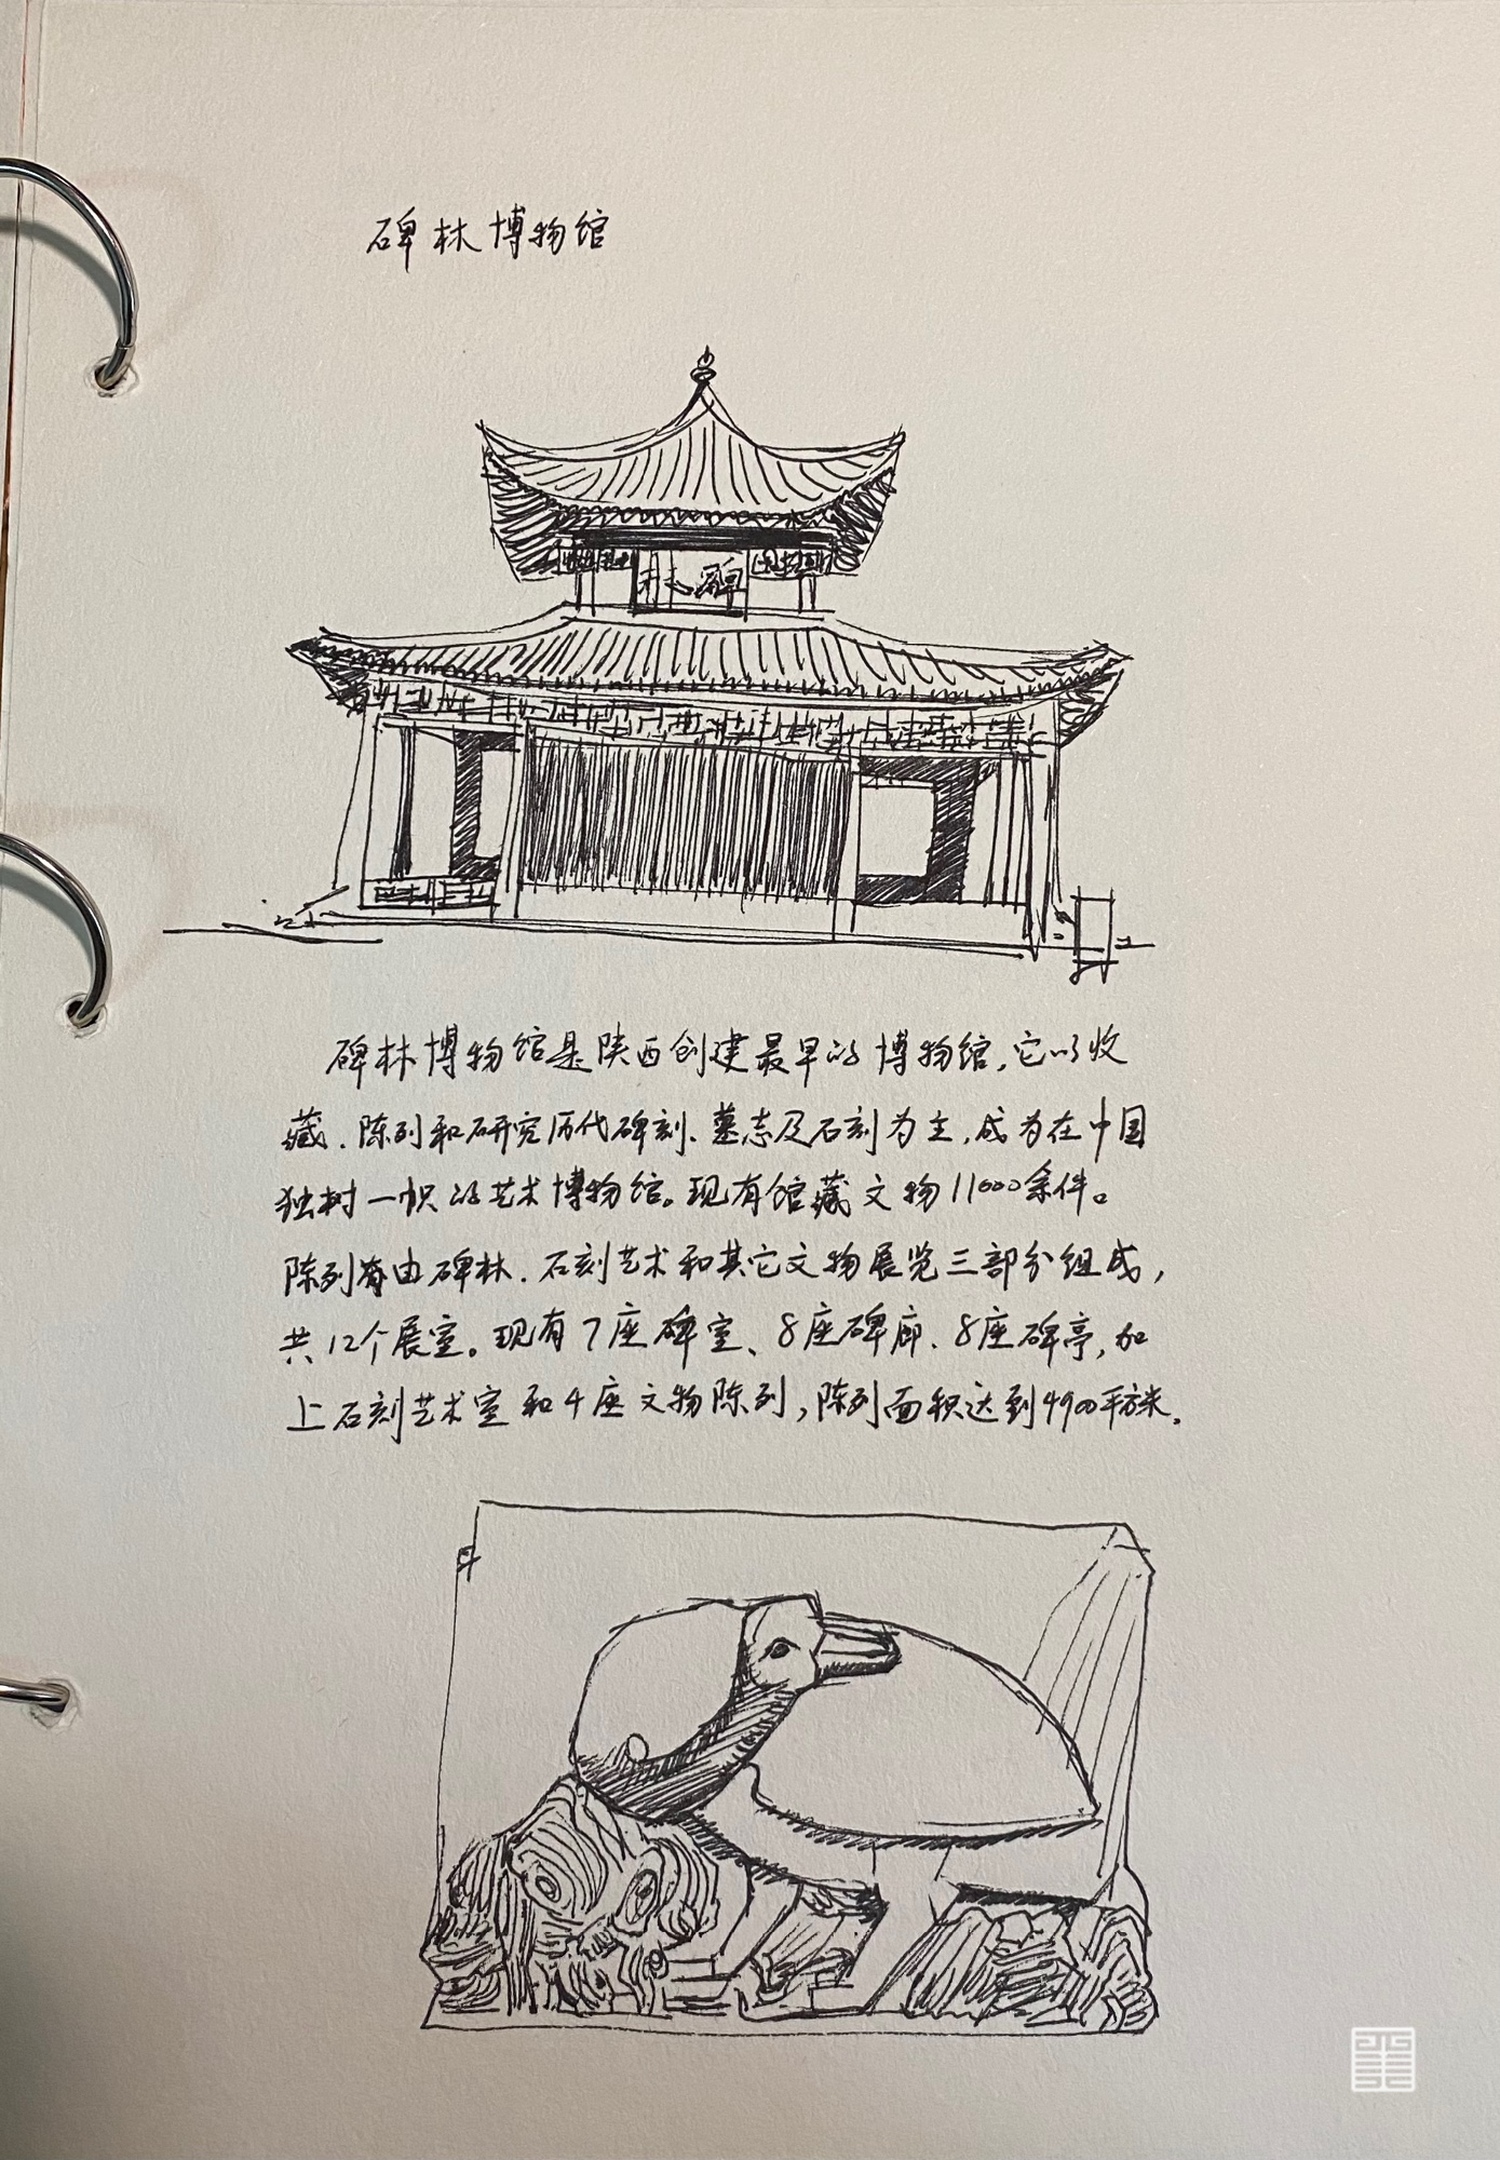 碑林博物馆
林碑
碑林博物馆是陕西创建最早的博物馆,它以收
藏、陈列和研究历代碑刻、墓志及石刻为主,成为在中国
独树一帜的艺术博物馆。现有馆藏文物11000余件。
陈列由碑林、石刻艺术和其它文物展览三部分组成,
共12个展室。现有7座碑室、8座碑廊、8座碑亭,加
上石刻艺术室和4座文物陈列,陈列面积达到4900平方米。